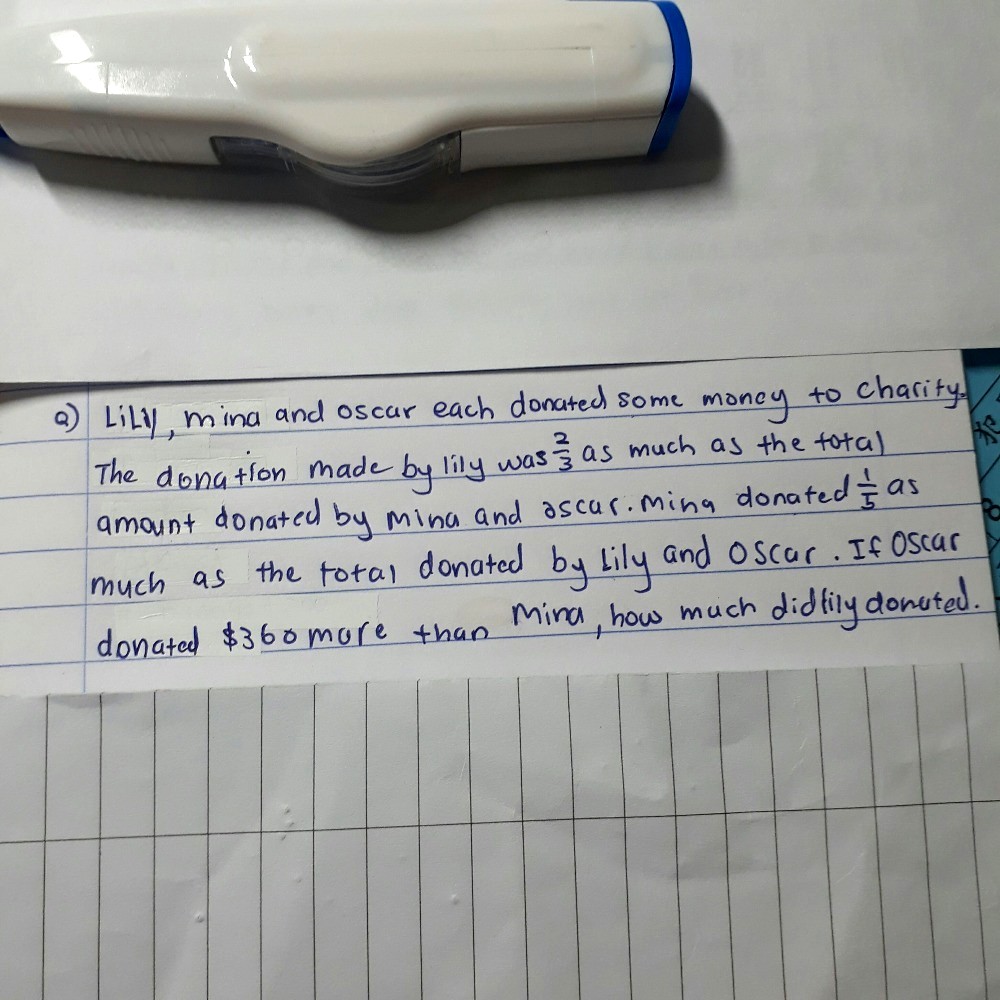 Q) Lily, mina and oscar each donated some money to charity.
The donation made by lily was 2/3 as much as the total
amount donated by mina and oscar. Mina donated 1/5 as
much as the total donated by Lily and Oscar. If Oscar
donated $360 more than Mina, how much did lily donated.